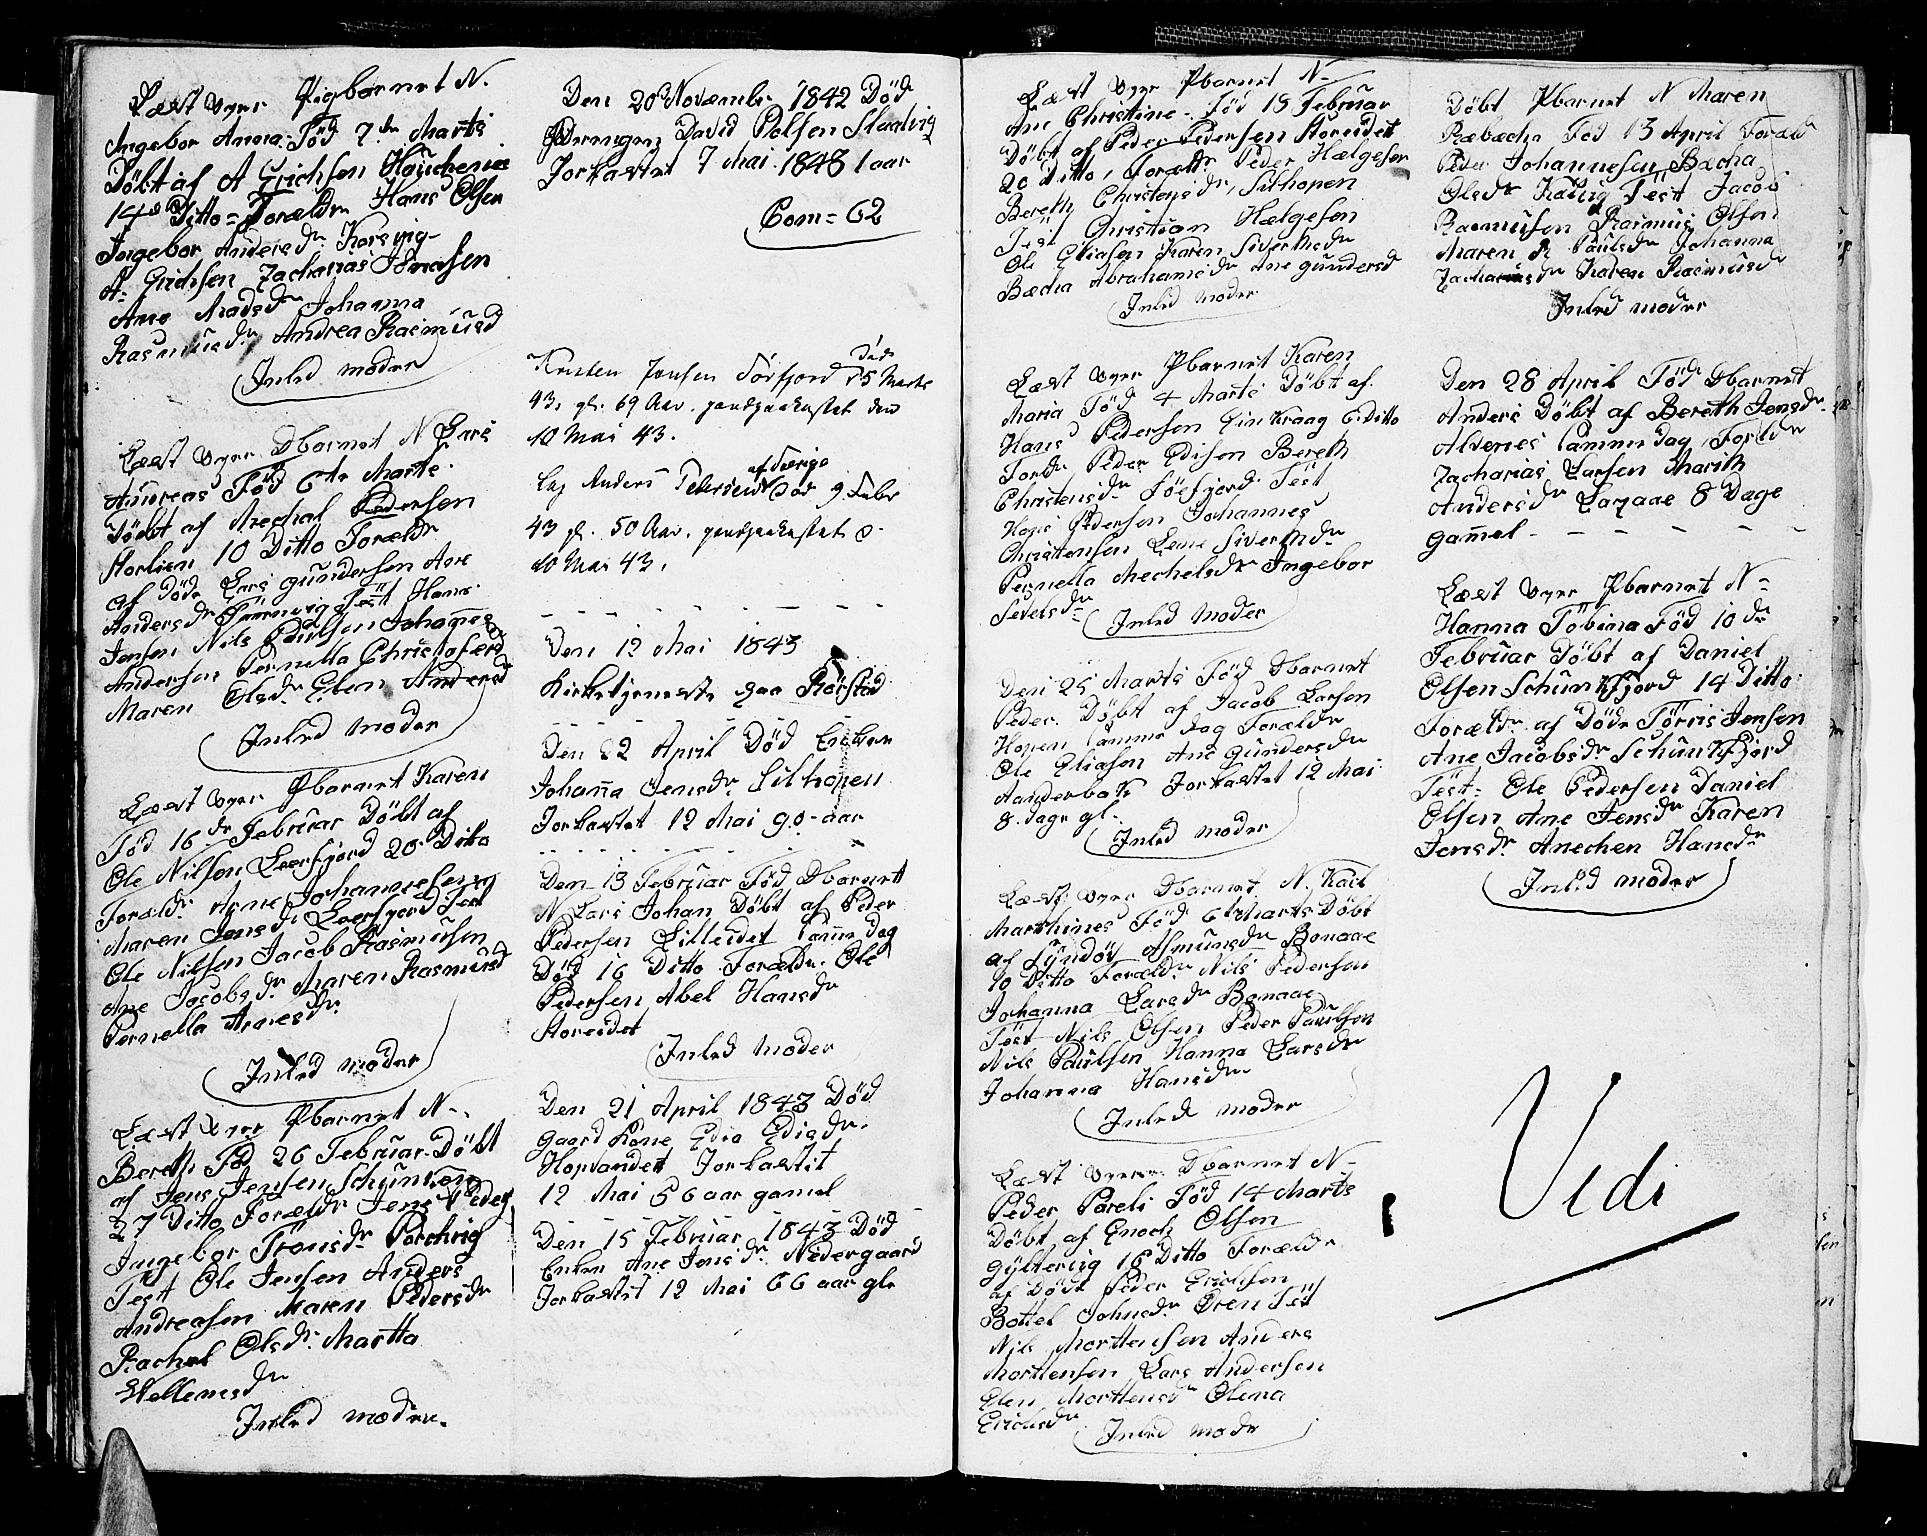 Læst over Pigbarnet N.
Ingebor Anna. Föd 7de Marts
Döbt af A Erichsen
14d Ditto = Foreldr Hans Olsen
Ingebor Andersdr Korsvig-
A= Erichsen Zacharias Jonasen
Ane Madsdr Johanna
Rasmusdr Andrea Rasmusd
Inled moder
Læst over Dbarnet N Lars
Andreas Föd 6te Marts.
Döbt af Pedersen
Storlien 10 Ditto Foreldr
af Döde Lars Gundersen Ane
Andersdr Test Hans
Jensen Nils Paulsen Johanes
Andersen Pernella Christofersd
Maren Olsdr Elen Andersd
Inled Moder
Læst over Pbarnet Karen
Föd 16de Februar Döbt af
Ole Nilsen Leerfjord 20 Ditto
Foreldr Arne Johannesen
Maren Jensdr Leerfjord Test
Ole Nilsen Jacob Rasmusen
Ane Jacobsdr Maren Rasmusd
Pernella Arnesdr
Inled moder
Læst over Pbarnet N-
Bereth Föd 26 Februar Döbt
af Jens Jensen
27 Ditto Foreldr Jens Peders
Ingebor
Test Ole Jensen Anders
Andreasen Maren Pedersdr
Rachel Olsdr Martta
Inled moder.
Den 20 Novembr 1842 Död
David Polsen
Jorkastet 7 Mai 1843 1 aar
Com = 62
Kristen Jensen Sörfjord död 15 Marts
43, gl. 69 Aar. paakastet den
10 Mai 43.
Lap Anders Pedersen af Sverige Död 9 Febr
43 gl. 50 Aar. paakastet d
10 Mai 43.
Den 12 Mai 1843
Kirketjeneste paa Rörstad
Den 22 April Död Enken
Johanna Jensdr Silhopen
Jorkastet 12 Mai 90- aar
Den 13 Februar Föd Dbarnet
N Lars Johan Döbt af Peder
Pedersen Lilleidet samme Dag
Död 16 Ditto Foreldr. Ole
Pedersen Abel Hansdr
Storeidet
Inled Moder
Den 21 April 1843 Död
Gaard Kone Edia Edisdr.
Hopvandet Jorkastet
12 Mai 56 aar gamel
Den 15 Februar 1843 Död
Enken Ane Jensdr Nedergaard
Jorkastet 12 Mai 66 aar gl
Læst over Pbarnet N-
Ane Christine Föd 15 Februar
Döbt af Peder Pedersen Storeidet
20 Ditto, Foreldr Peder Hælgesen
Bereth Christensdr, Silhopen
Test Christian Hælgesen
Ole Eliasen Karen Siverthsdr
Bæcha Abrahamsdr Ane Gundersd
Inled moder
Læst over Pbarnet Karen
Maria Föd 4 Marts Döbt af
Hans Pedersen Finkraag 6 Ditto
Foreldr Peder Edisen Bereth
Christensdr Test
Hans Pedersen Johannes
Christensen Lene Siverthsdr
Pernella Mechelsdr Ingebor
Inled Moder
Den 25 Marts Föd Dbarnet
Peder. Döbt af Jacob Larsen
Hopen samme dag Foreldr
Ole Eliasen Ane Gundersdr
Aanderbak Jorkastet 12 Mai
8. dage gl-
Inled moder
Læst over Dbarnet N. Karl
Marthines Föd 6te Marts Döbt
af Asmunsdr Bonaae
10 Ditto Foreldr Nils Pedersen
Johanna Larsdr Bonaae
Test Nils Olsen Peder Paulsen
Nils Paulsen Hanna Larsdr
Johanna Hansdr
Inled moder
Læst over Dbarnet N-
Peder Pareli Föd 14 Marts
Döbt af Enoch Olsen
Gyltevig 16 Ditto Foreldr
af Döde Peder Erichsen
Bottel Johnsdr Test
Nils Morttensen Anders
Morttensen Lars Andersen
Elen Morttensdr Olena
Erichsdr
Inled moder
Döbt Pbarnet N Maren
Ræbecha Föd 13 April Foreld
Peder Johannesen Bæcha
Olsdr Test Jacob
Rasmusen Rasmus Olsen
Maren R Paulsdr Johanna
Zachariasdr Karen Rasmusd
Inled moder
Den 28 April Föd Dbarnet
Anders Döbt af Bereth Jensdr
Alvenes samme Dag, Foreldr
Zacharias Larsen Marith
Andersdr Laxaae 8 Dage
gamel-
Læst over Pbarnet N-
Hanna Tobina Föd 10de
Februar Döbt af Daniel
Olsen Schunkfjord 14 Ditto
Foreldr af Döde Törris Jensen
Ane Jacobsdr Schunkfjord
Test- Ole Pedersen Daniel
Olsen Ane Jensdr Karen
Jensdr Anechen Hansdr
Inled moder
Vidi